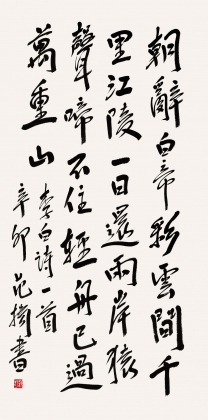 朝辭白帝彩雲間千
里江陵一日還兩岸猿
聲啼不住輕舟已過
萬重山
李白詩一首
辛卯 范揚書